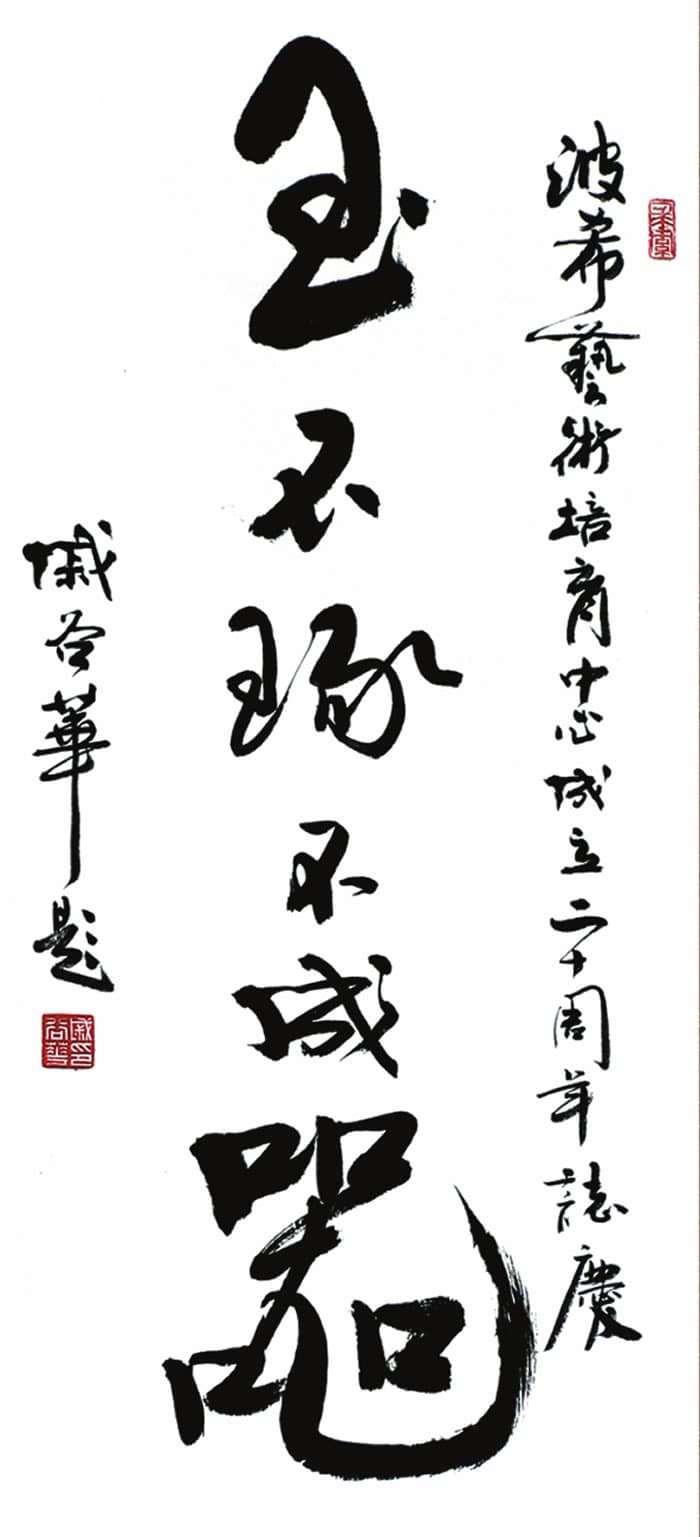 波希藝術培育中心成立二十周年誌慶
玉不琢不成器
戚谷華題
戚谷華印